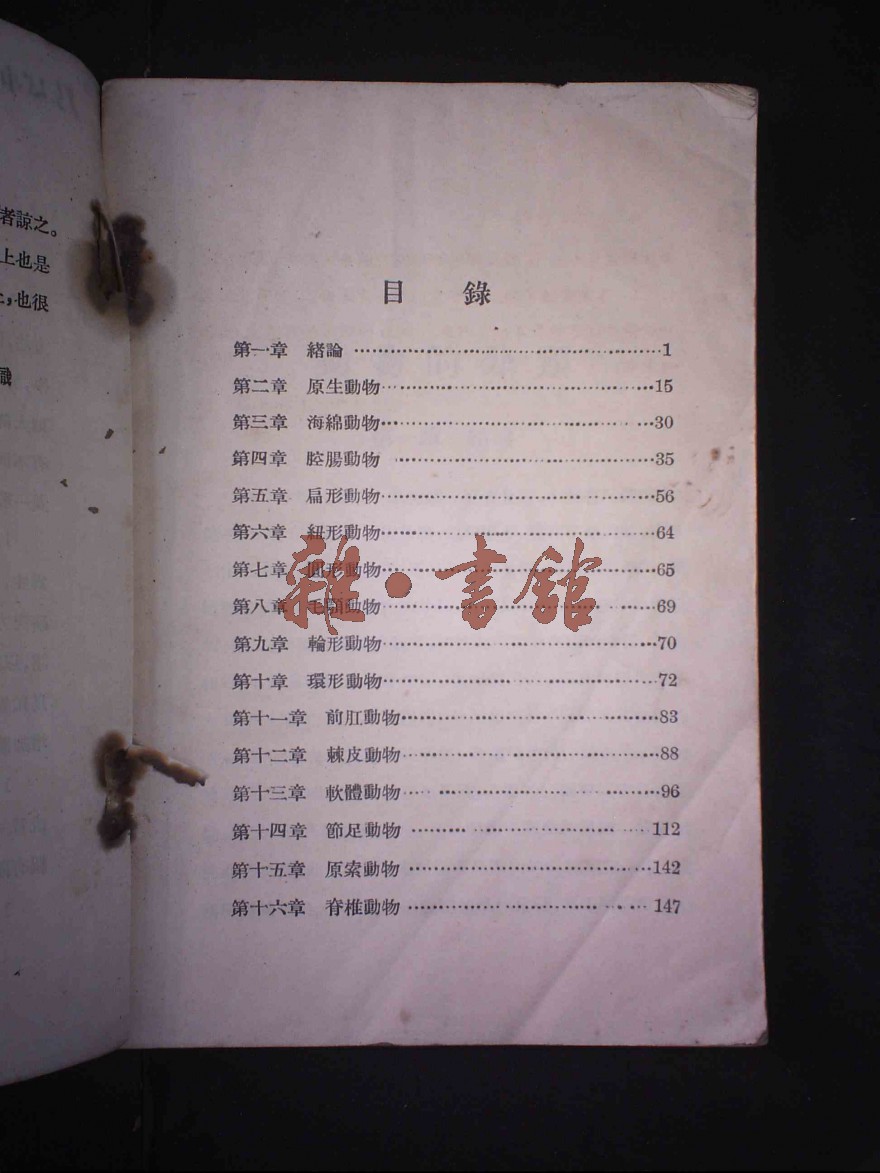 者諒之。
上也是
,也很
識
目錄
第一章 緒論 ……1
第二章 原生動物……15
第三章 海綿動物……30
第四章 腔腸動物 ……35
第五章 扁形動物……56
第六章 紐形動物……64
第七章 圓形動物……65
第八章 毛顎動物……69
第九章 輪形動物……70
第十章 環形動物……72
第十一章 前肛動物……83
第十二章 棘皮動物……88
第十三章 軟體動物……96
第十四章 節足動物……112
第十五章 原索動物……142
第十六章 脊椎動物……147
雜·書館